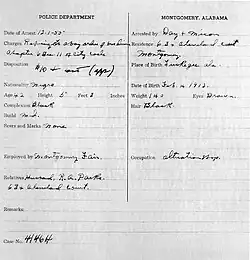 POLICE DEPARTMENT
MONTGOMERY, ALABAMA
Date of Arrest 12-1-55
Arrested by Day & Mixon
Charges Refusing to obey orders of bus driver
Residence 634 Cleveland Court
Chapter 6 Sec 11 of City Code
Montgomery
Disposition $10 + cost (app)
Place of Birth Tuskegee Ala.
Nationality Negro
Date of Birth Feb. 4 1913.
Age 42 Height 5 Feet 3 Inches
Weight 140 Eyes Brown
Complexion Black
Hair Black
Build Med.
Scars and Marks None
Employed by Montgomery Fair.
Occupation
Relatives Husband, R. A. Parks
634 Cleveland Court.
Remarks:
Case No.